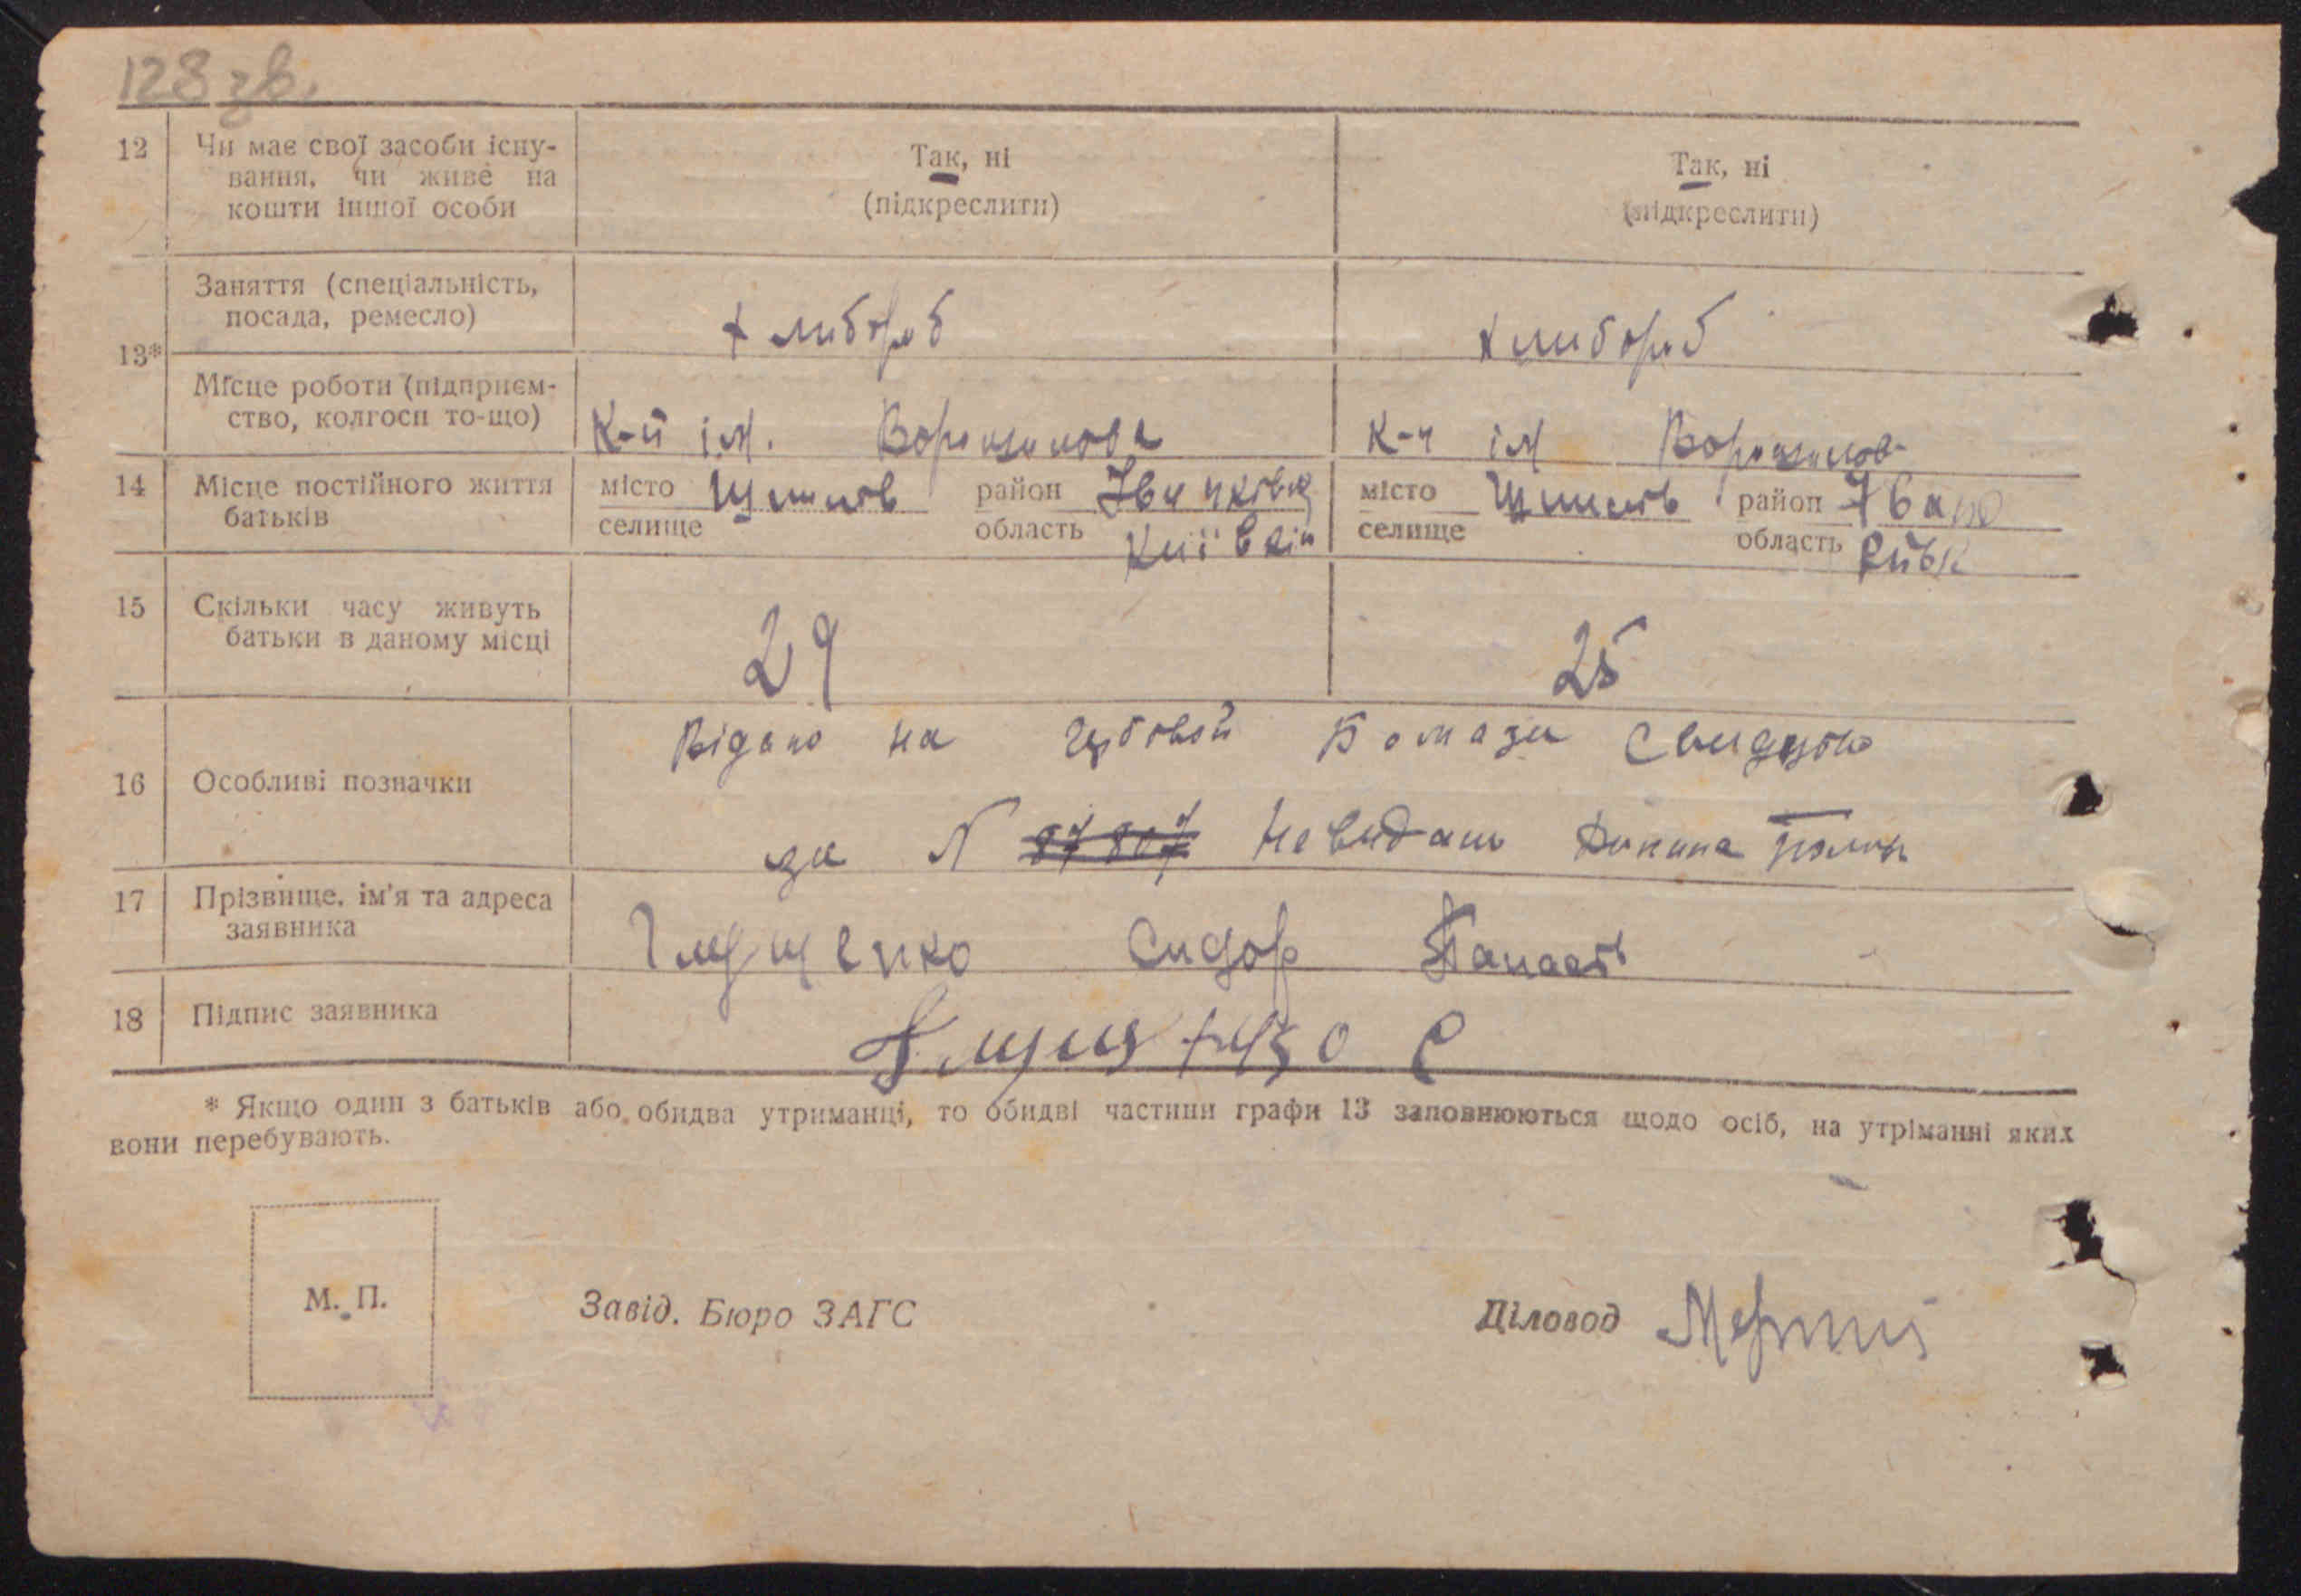 128 зв.
12 Чи має свої засоби існу- Так, ні Так, ні
вання, чи живе на (підкреслити) (підкреслити)
кошти іншої особи
Заняття (спеціальність, хлибороб хлибороб
посада, ремесло)
13*
Місце роботи (підприєм-
ство, колгосп то-що) К-п ім. Ворошилова К-п ім Ворошилов
14 Місце постійного життя місто район місто район
батьків селище область Київскій селище область
15 Скільки часу живуть 29 25
батьки в даному місці
Відано на Бомази
16 Особливі позначки
за N
17 Прізвище, ім'я та адреса
заявника Глущенко Сидор Панасів
18 Підпис заявника
* Якщо один з батьків або обидва утриманці, то обидві частини графи 13 заповнюються щодо осіб, на утріманні яких
вони перебувають.
М. П. Завід. Бюро ЗАГС Діловод